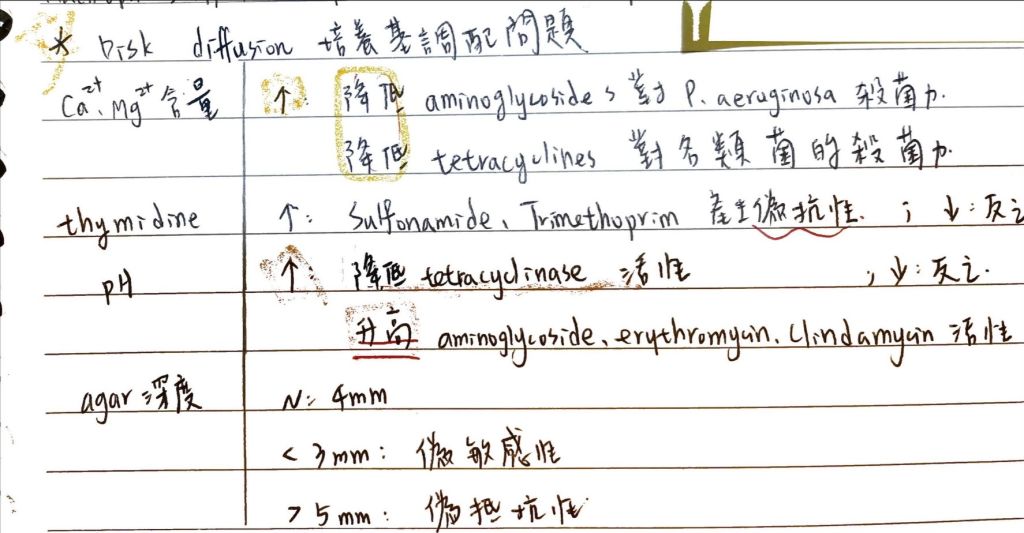 * Disk diffusion 培養基調配問題
Ca²⁺、Mg²⁺含量 ↑: 降低 aminoglycosides 對 P. aeruginosa 殺菌力.
降低 tetracyclines 對各類菌的殺菌力.
thymidine ↑: Sulfonamide、Trimethoprim 產生偽抗性. ; ↓:反之
pH ↑ 降低 tetracyclinase 活性 ; ↓:反之.
升高 aminoglycoside、erythromycin、Clindamycin 活性
agar 深度 N: 4mm
< 3mm: 偽敏感性
> 5mm: 偽抵抗性